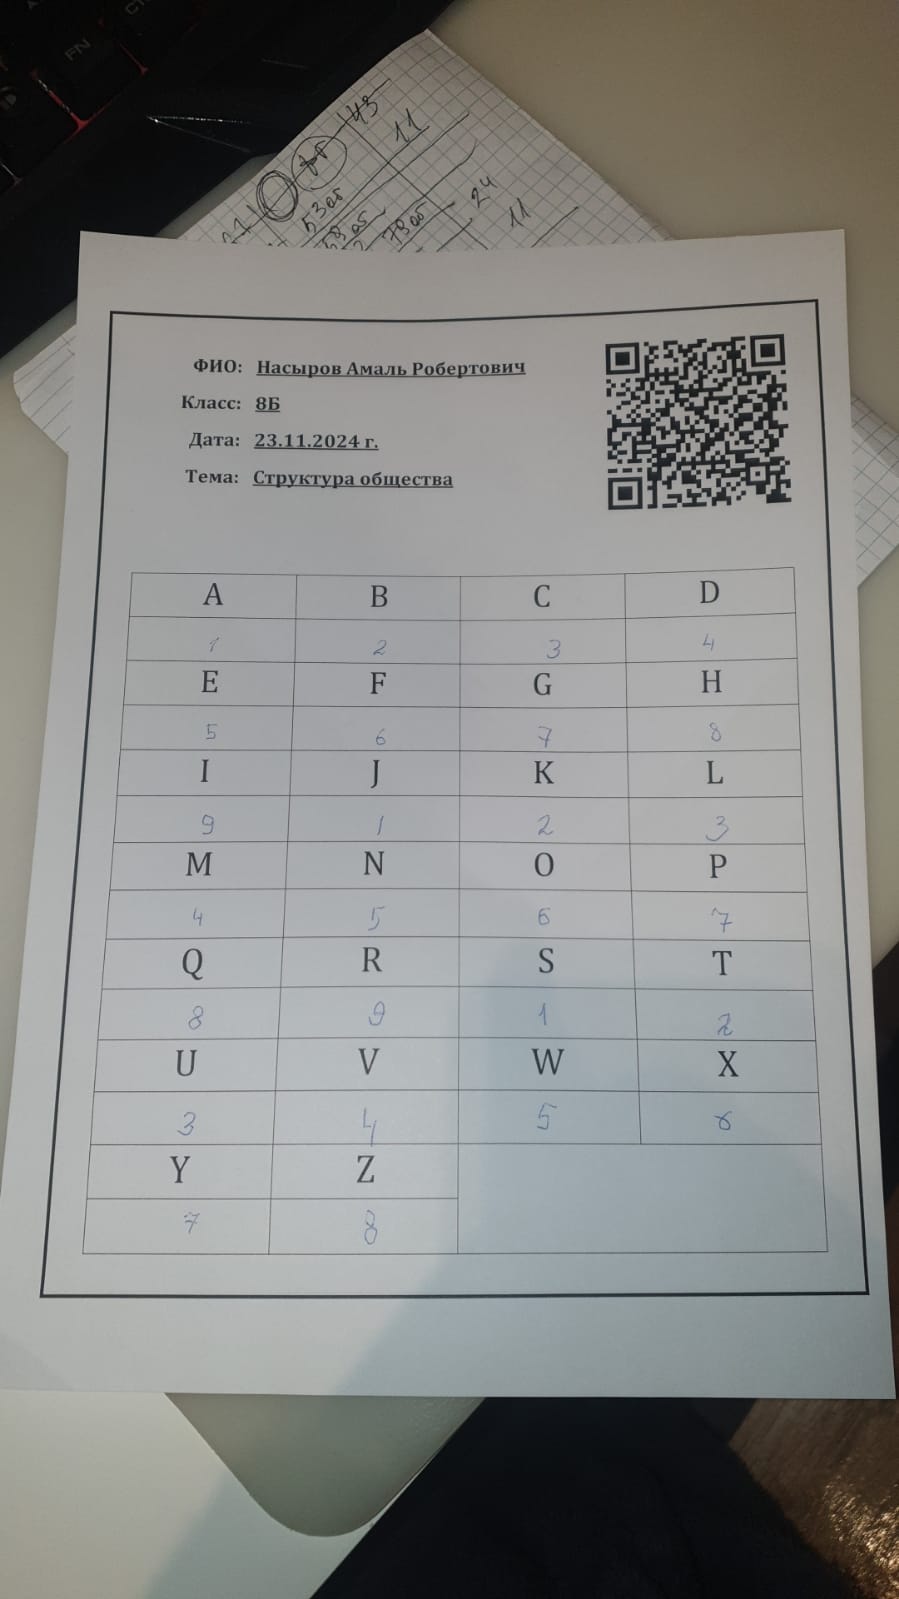 FN
43
11
53об
78об
24
11
ФИО: Насыров Амаль Робертович
Класс: 8Б
Дата: 23.11.2024 г.
Тема: Структура общества
A B C D
1 2 3 4
E F G H
5 6 7 8
I J K L
9 1 2 3
M N O P
4 5 6 7
Q R S T
8 9 1 2
U V W X
3 4 5 6
Y Z
7 8